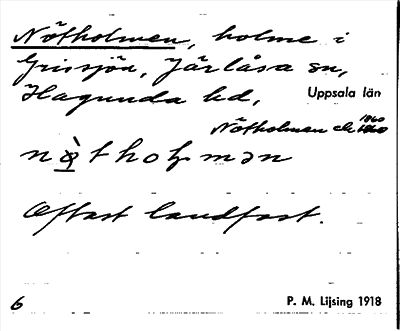 Nötholmen, holme i
Grissjön, Järlåsa sn,
Hagunda hd, Uppsala län
Nötholmen ek 1860
nö̀tholmən
Oftast landfast.
6 P. M. Lijsing 1918